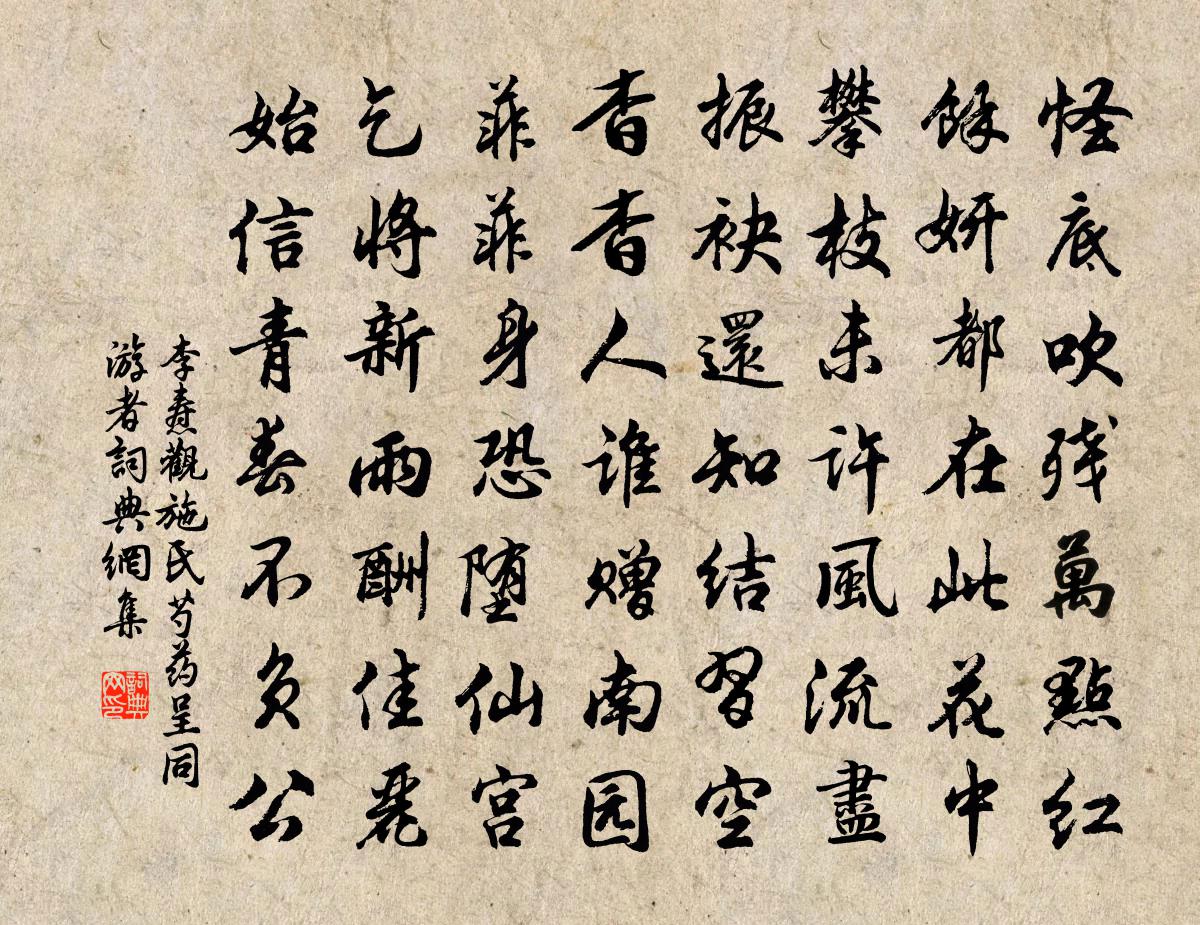 怪底吹残萬點红
餘妍都在此花中
攀枝未许風流盡
振袂還知结習空
杳杳人谁赠南园
菲菲身恐堕仙宫
乞將新雨酬佳麗
始信青春不负公
李燾觀施氏芍药呈同
游者詞典網集
詞典网印